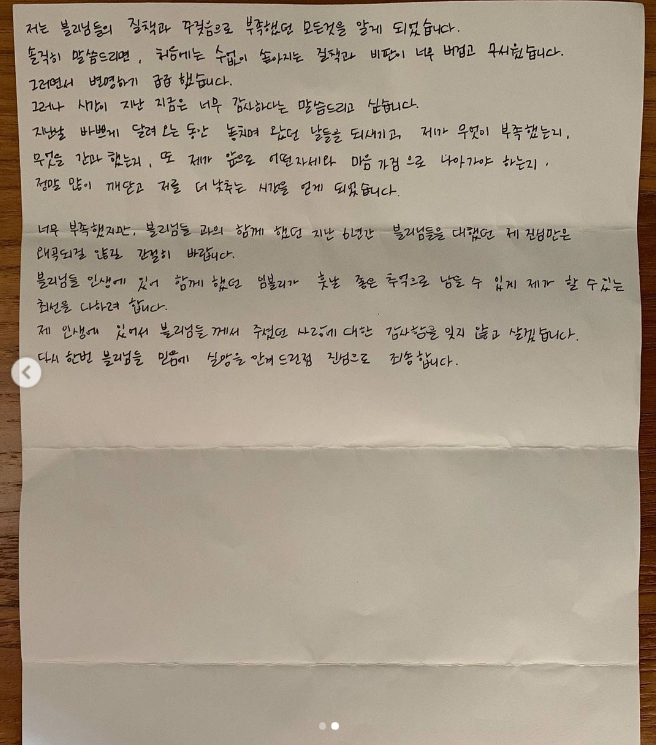 저는 블리님들의 질책과 꾸짖음으로 부족했던 모든것을 알게 되었습니다.
솔직히 말씀드리면, 처음에는 수없이 쏟아지는 질책과 비판이 너무 버겁고 무서웠습니다.
그러면서 변명하기 급급 했습니다.
그러나 시간이 지난 지금은 너무 감사하다는 말씀드리고 싶습니다.
지난날 바쁘게 달려 오는 동안 놓치며 왔던 날들을 되새기고, 제가 무엇이 부족했는지,
무엇을 간과 했는지, 또 제가 앞으로 어떤자세와 마음 가짐 으로 나아가야 하는지,
정말 많이 깨닫고 저를 더 낮추는 시간을 얻게 되었습니다.
너무 부족했지만, 블리님들 과의 함께 했던 지난 6년간 블리님들을 대했던 제 진심만은
왜곡되질 않길 간절히 바랍니다.
블리님들 인생에 있어 함께 했던 임블리가 훗날 좋은 추억으로 남을 수 있게 제가 할 수 있는
최선을 다하려 합니다.
제 인생에 있어서 블리님들께서 주셨던 사랑에 대한 감사함을 잊지 않고 살겠습니다.
다시 한번 블리님들 믿음에 실망을 안겨 드린점 진심으로 죄송합니다.